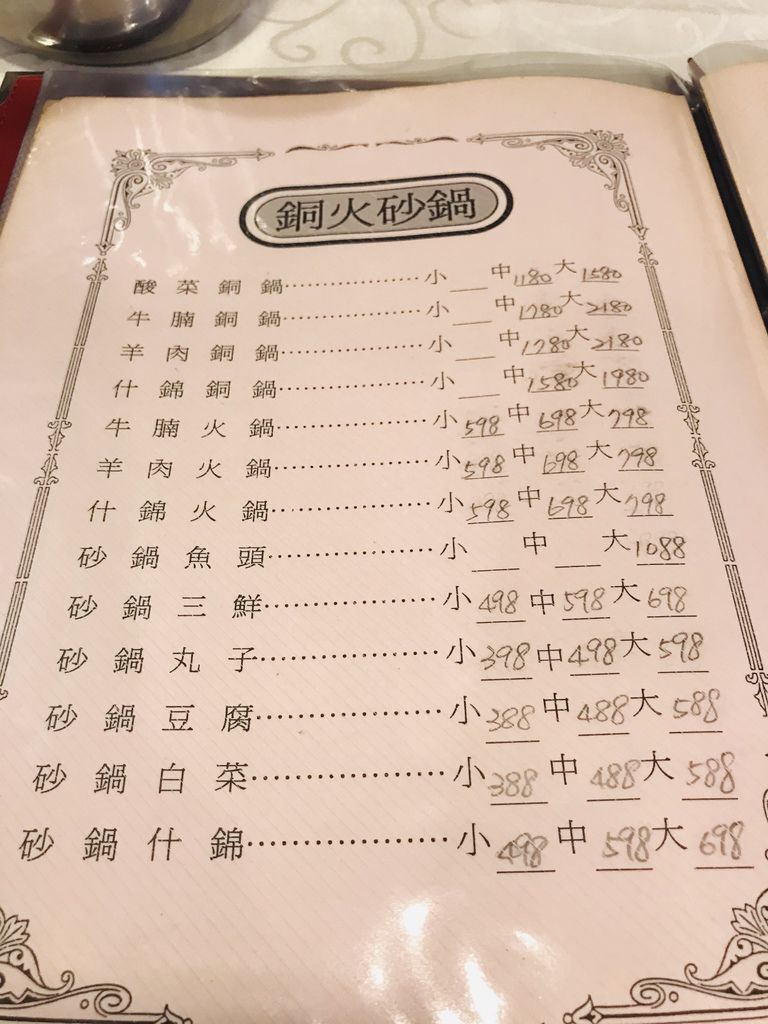 銅火砂鍋
酸菜銅鍋………………小___中1180大1580
牛腩銅鍋………………小___中1780大2180
羊肉銅鍋………………小___中1780大2180
什錦銅鍋………………小___中1580大1980
牛腩火鍋………………小598中698大798
羊肉火鍋………………小598中698大798
什錦火鍋………………小598中698大798
砂鍋魚頭………………小___中___大1088
砂鍋三鮮………………小498中598大698
砂鍋丸子………………小398中498大598
砂鍋豆腐………………小388中488大588
砂鍋白菜………………小388中488大588
砂鍋什錦………………小498中598大698